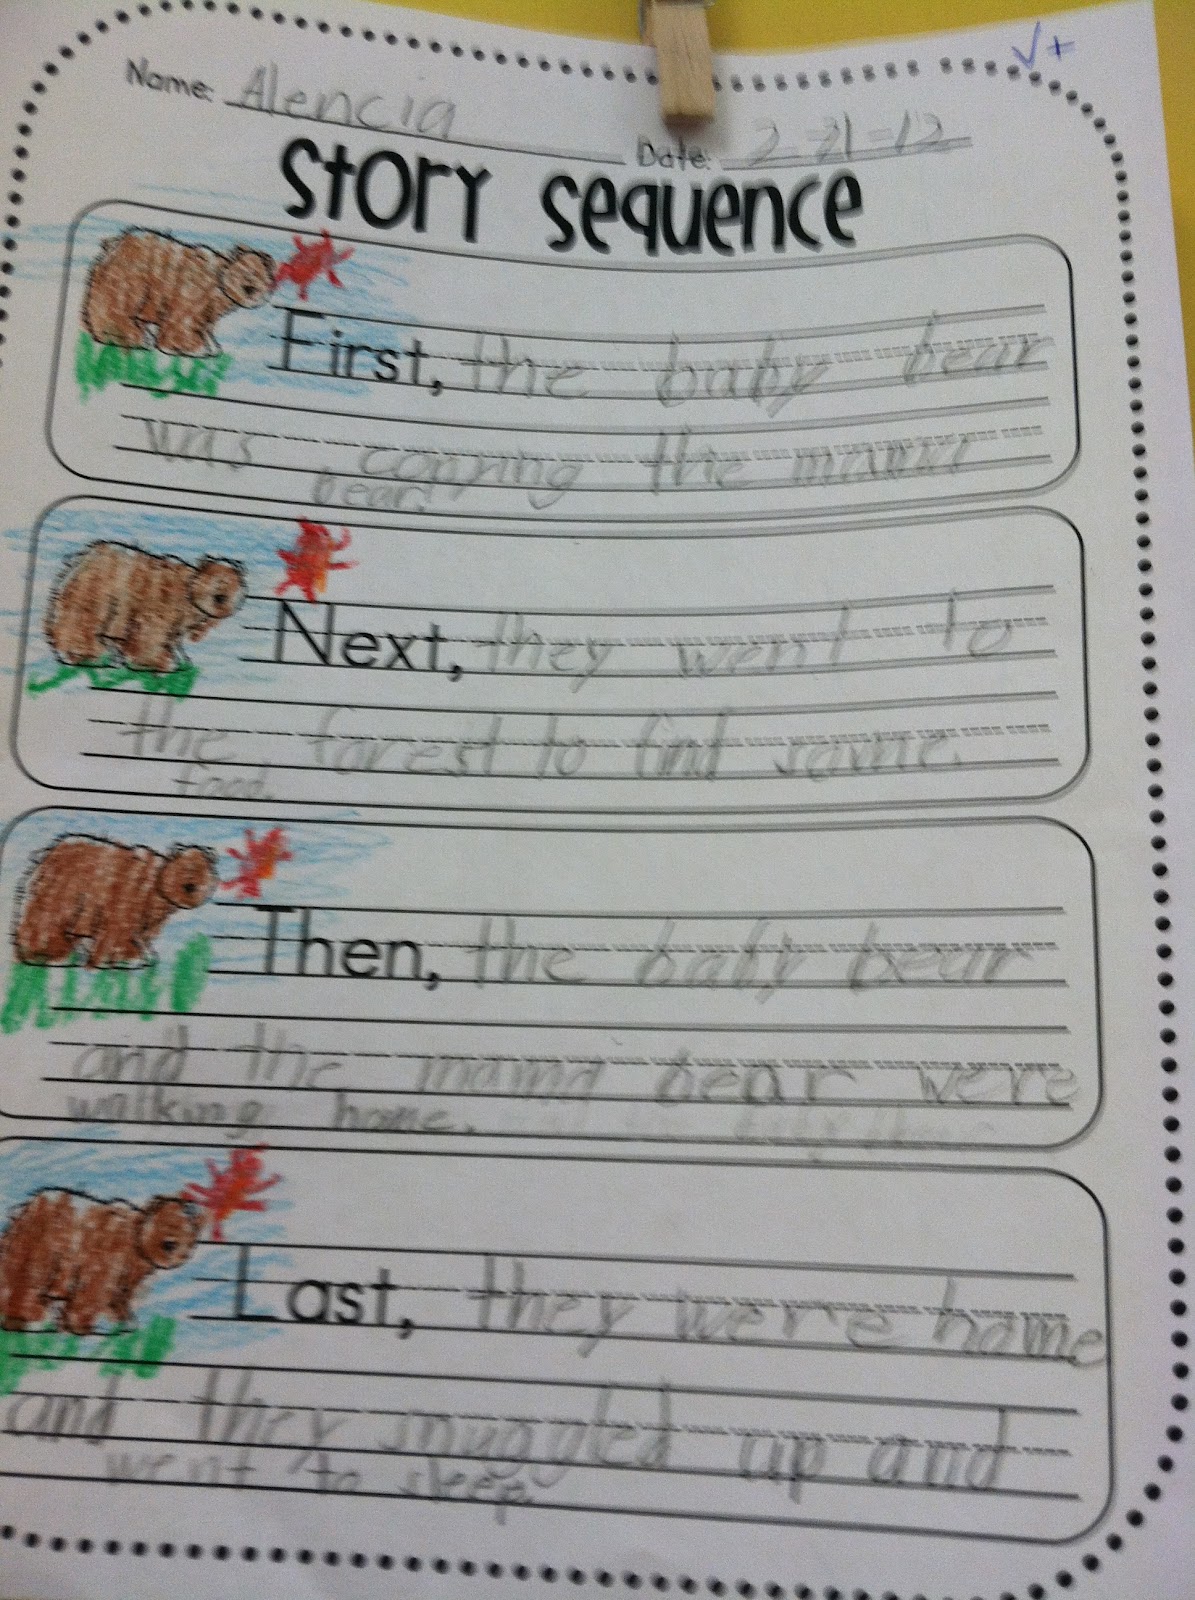 √+
Name: Alencia
Date: 2-21-12
Story Sequence
First, the baby bear
was copying the mama
bear.
Next, they went to
the forest to find some
food.
Then, the baby bear
and the mama bear were
walking home.
Last, they were home
and they snuggled up and
went to sleep.